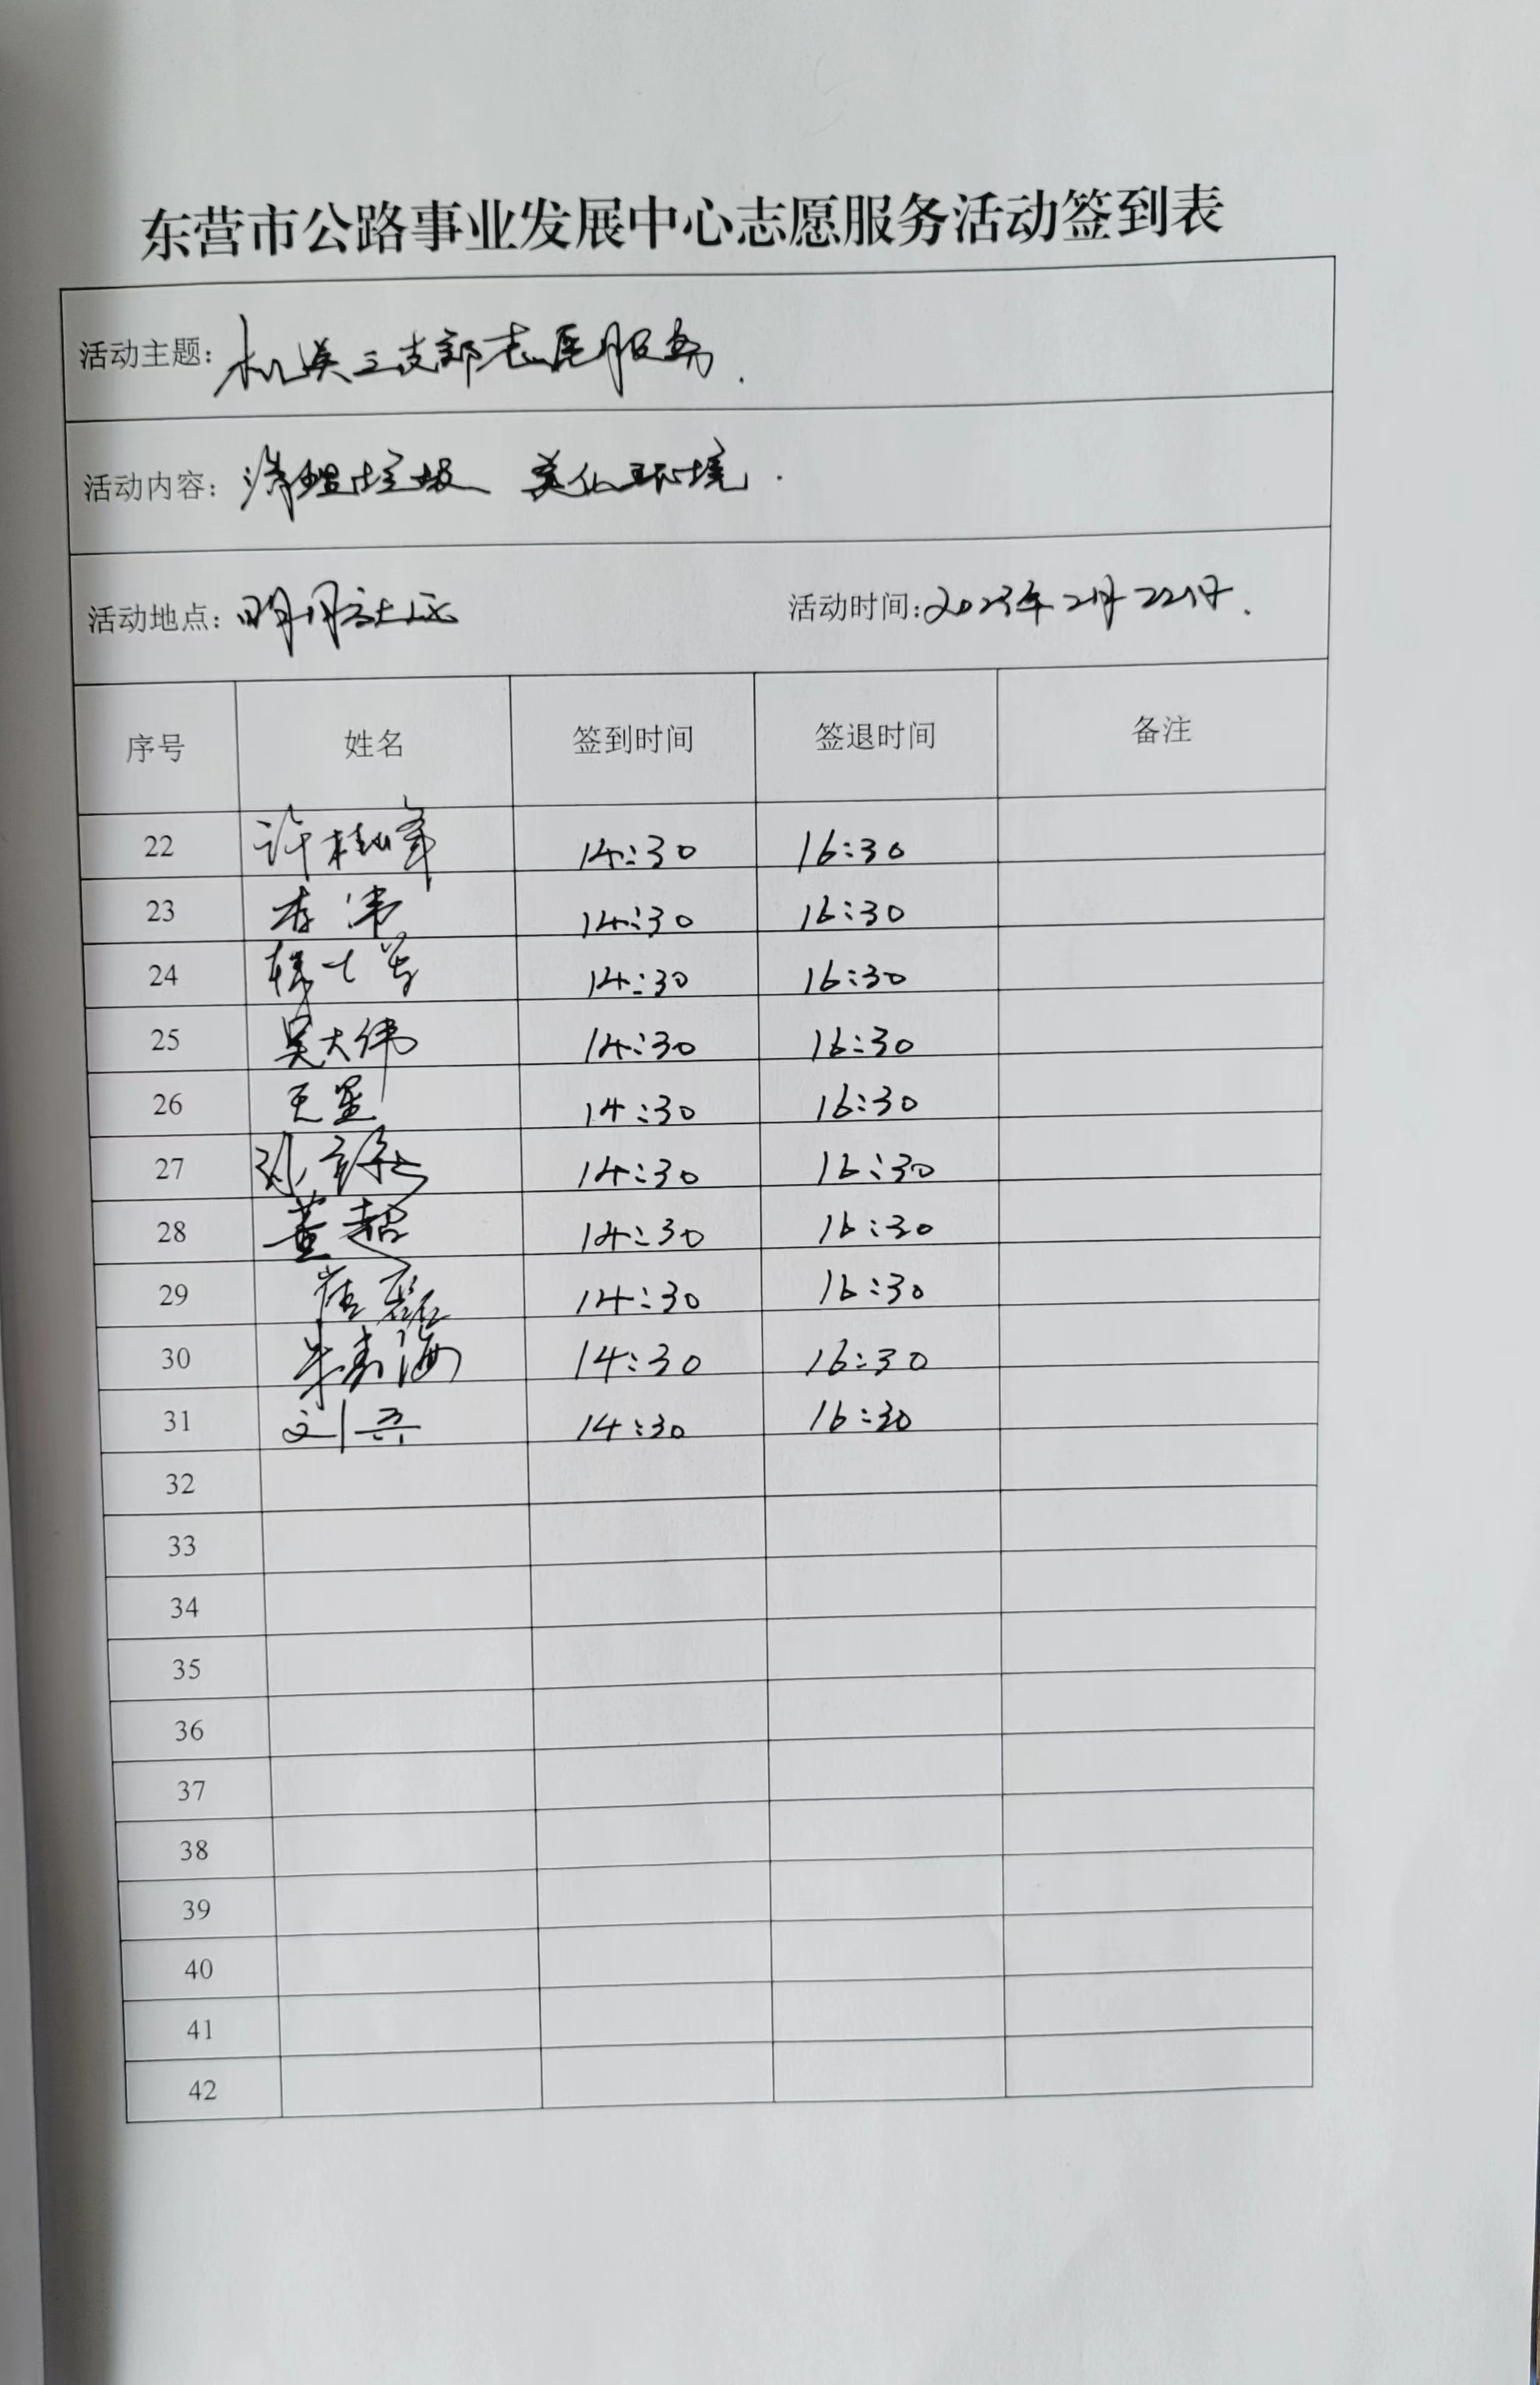 东营市公路事业发展中心志愿服务活动签到表
活动主题: 机关三支部志愿服务.
活动内容: 清理垃圾 美化环境.
活动地点: 明月社区 活动时间: 2023年2月22日.
序号 姓名 签到时间 签退时间 备注
22 许桂峰 14:30 16:30
23 李伟 14:30 16:30
24 14:30 16:30
25 吴大伟 14:30 16:30
26 王星 14:30 16:30
27 14:30 16:30
28 董超 14:30 16:30
29 崔磊 14:30 16:30
30 海 14:30 16:30
31 刘兵 14:30 16:30
32
33
34
35
36
37
38
39
40
41
42